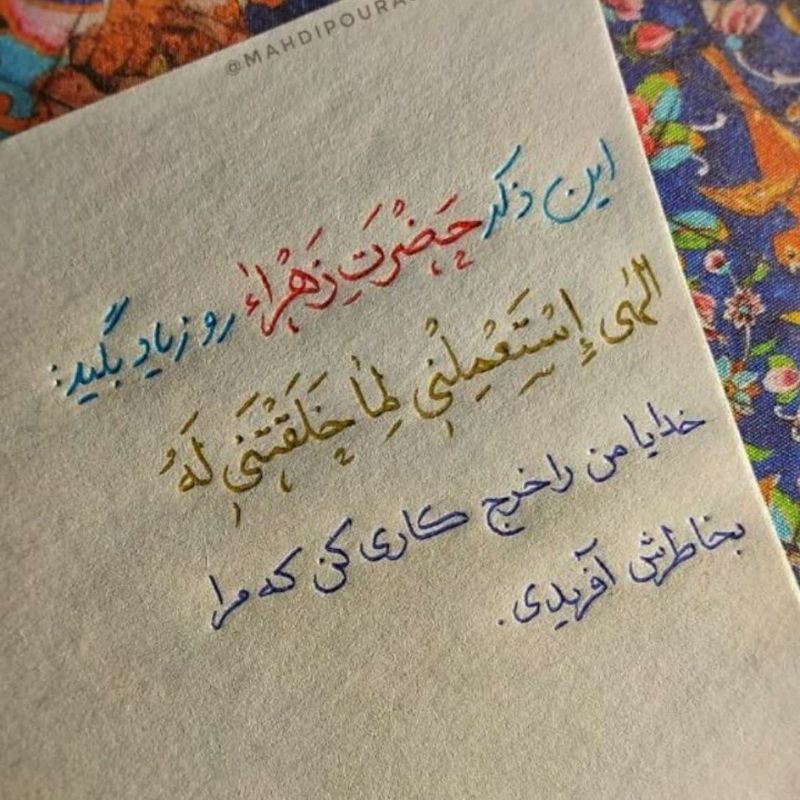 @MAHDIPOURA
این ذکر حَضْرَتِ زَهْراءٰ رو زیاد بگید:
الهٰی إِسْتَعْمِلْنیٖ لِمٰا خَلَقْتَنیٖ لَهُ
خدایا من را خرج کاری کن که مرا
بخاطرش آفریدی.